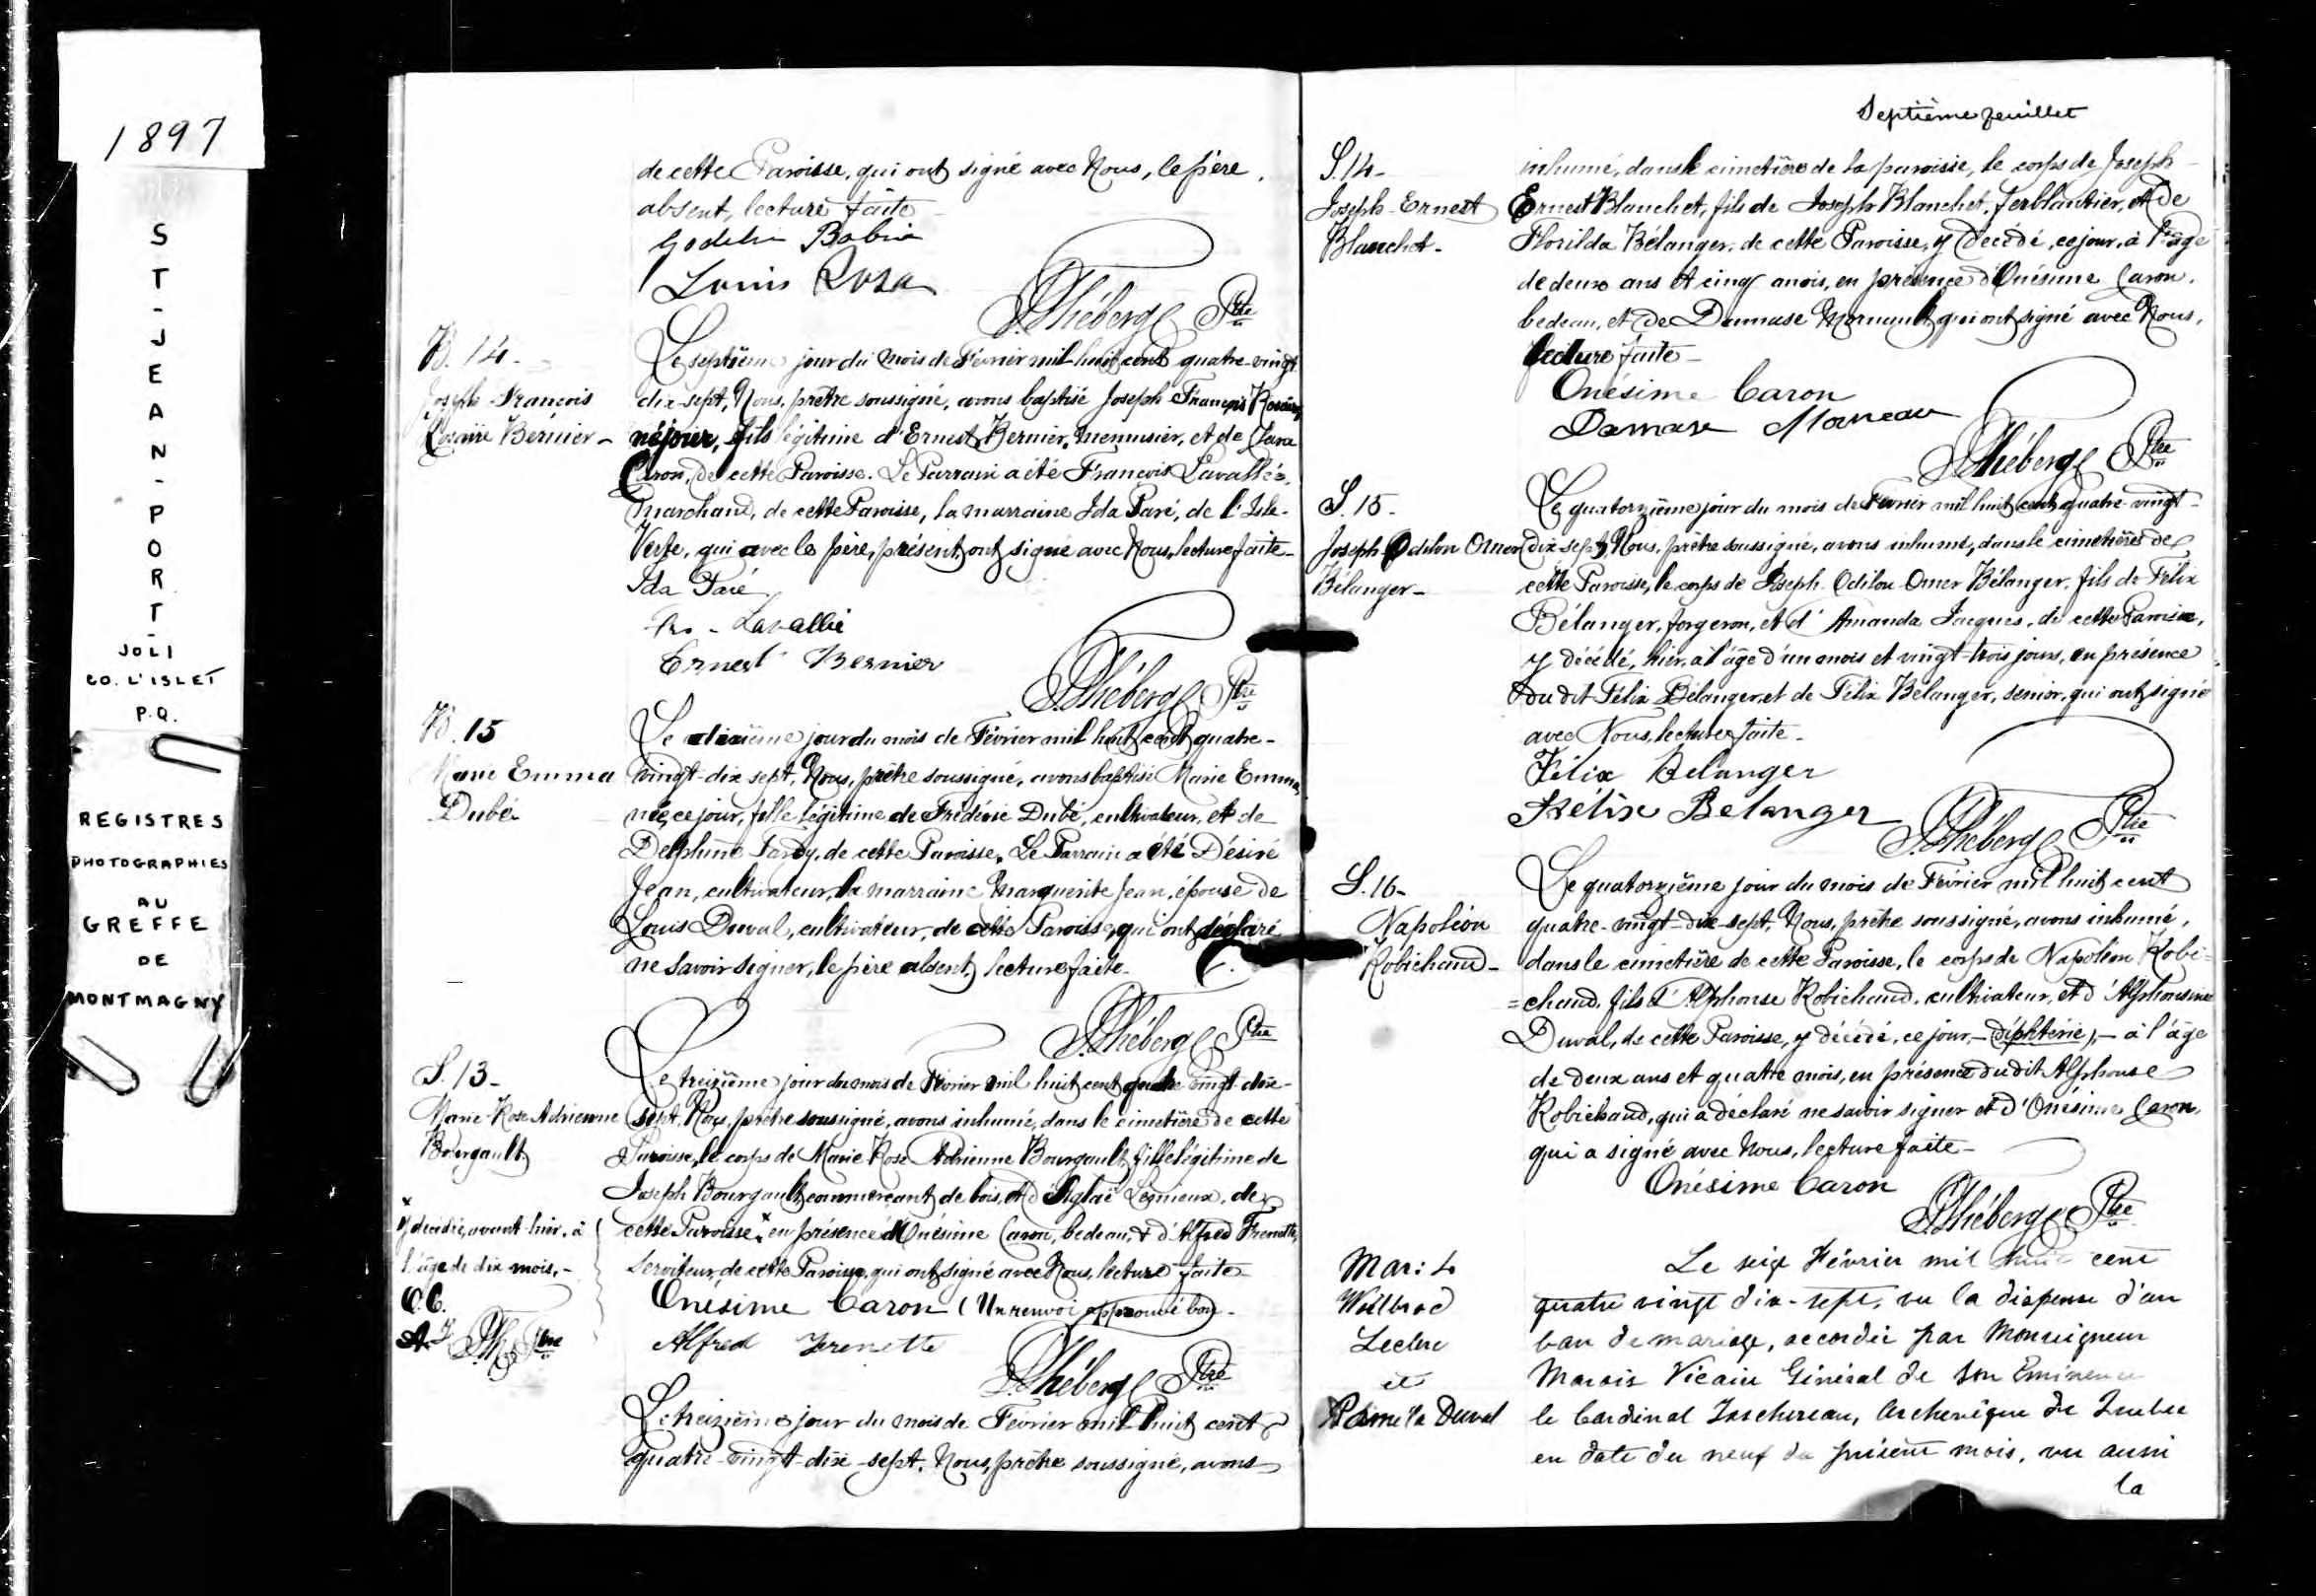 1897
ST-JEAN-PORT-
JOLI
CO. L'ISLET
P.Q.
REGISTRES
PHOTOGRAPHIES
AU
GREFFE
DE
MONTMAGNY
de cette Paroisse, qui ont signé avec Nous, le père
absent, lecture faite
Babin
Louis Rosa
F. Théberge Ptre
B. 14.
Joseph François
Rosaire Bernier -
Le septième jour du mois de Février mil huit cent quatre-vingt
dix-sept, Nous, prêtre soussigné, avons baptisé Joseph François Rosaire,
né, fils légitime d'Ernest Bernier, menuisier, et de
Caron, de cette Paroisse. Le Parrain a été François Lavallée,
marchand, de cette Paroisse, la marraine Ida Paré, de l'Isle-
Verte, qui avec le père, présent, ont signé avec Nous, lecture faite -
Ida Paré
Frs - Lavallée
Ernest Bernier
F. Théberge Ptre
B. 15
Marie Emma
Dubé
Le dixième jour du mois de Février mil huit cent quatre-
vingt-dix sept, Nous, prêtre soussigné, avons baptisé Marie Emma,
née, ce jour, fille légitime de Frédéric Dubé, cultivateur, et de
Delphine Tardy, de cette Paroisse. Le Parrain a été Désiré
Jean, cultivateur, la marraine Marguerite Jean, épouse de
Louis Duval, cultivateur, de cette Paroisse, qui ont déclaré
ne savoir signer, le père absent, lecture faite -
F. Théberge Ptre
S. 13 -
Marie-Rose Adrienne
Bourgault
Le treizième jour du mois de Février mil huit cent quatre vingt-dix-
sept, Nous, prêtre soussigné, avons inhumé, dans le cimetière de cette
Paroisse, le corps de Marie-Rose Adrienne Bourgault, fille légitime de
Joseph Bourgault, commerçant de bois, et d'Aglaé Lemieux, de
cette Paroisse, x en présence d'Onésime Caron, bedeau, & d'Alfred Frenette,
serviteur, de cette Paroisse, qui ont signé avec Nous, lecture faite -
x
y décédée, avant-hier, à
l'âge de dix mois, -
O.C.
A.F. Ptre
Onésime Caron (Un renvoi approuvé bon -
Alfred Frenette
F. Théberge Ptre
Le treizième jour du mois de Février mil huit cent
quatre-vingt-dix-sept, Nous, prêtre soussigné, avons
Septième feuillet
S. 14 -
Joseph-Ernest
Blanchet -
inhumé, dans le cimetière de la paroisse, le corps de Joseph-
Ernest Blanchet, fils de Joseph Blanchet, ferblantier, et de
Florilda Bélanger, de cette Paroisse, y décédé, ce jour, à l'âge
de deux ans et cinq mois, en présence d'Onésime Caron,
bedeau, et de Damase Mornault, qui ont signé avec Nous,
lecture faite -
Onésime Caron
Damase Morneau
F. Théberge Ptre
S. 15 -
Joseph Odilon Omer
Bélanger -
Le quatorzième jour du mois de Février mil huit cent quatre-vingt-
dix sept, Nous, prêtre soussigné, avons inhumé, dans le cimetière de
cette Paroisse, le corps de Joseph-Odilon-Omer Bélanger, fils de Félix
Bélanger, forgeron, et d'Amanda Jacques, de cette Paroisse,
y décédé, hier, à l'âge d'un mois et vingt-trois jours, en présence
du dit Félix Bélanger et de Félix Bélanger, senior, qui ont signé
avec Nous, lecture faite -
Félix Belanger
Félix Belanger
F. Théberge Ptre
S. 16 -
Napoléon
Robichaud -
Le quatorzième jour du mois de Février mil huit cent
quatre-vingt-dix-sept, Nous, prêtre soussigné, avons inhumé,
dans le cimetière de cette Paroisse, le corps de Napoléon Robi=
=chaud, fils d'Alphonse Robichaud, cultivateur, et d'Alphonsine
Duval, de cette Paroisse, y décédé, ce jour, - (diphtérie), - à l'âge
de deux ans et quatre mois, en présence du dit Alphonse
Robichaud, qui a déclaré ne savoir signer et d'Onésime Caron,
qui a signé avec Nous, lecture faite -
Onésime Caron
F. Théberge Ptre
Mar: 4
Wilbrod
Leclerc
et
Duval
Le seize Février mil huit cent
quatre vingt dix-sept, vu la dispense d'un
ban de mariage, accordée par Monseigneur
Marois Vicaire Général de Son Eminence
le Cardinal Taschereau, Archevêque de Québec
en date du neuf du présent mois, vu aussi
la